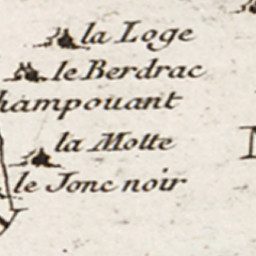 la Loge
le Berdrac
hampouant
la Motte
le Jonc noir